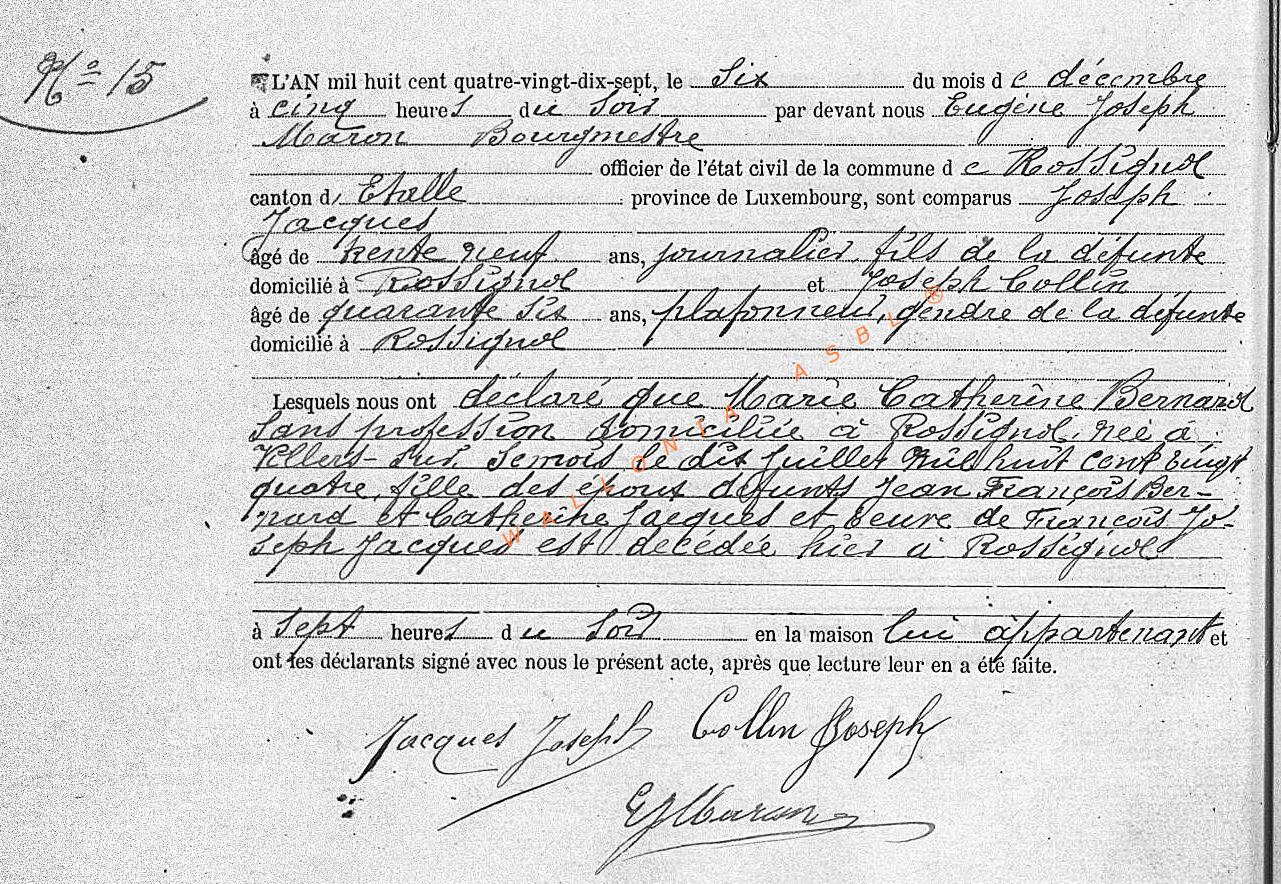 N° 15
L'AN mil huit cent quatre-vingt-dix-sept, le six du mois de décembre
à cinq heures du soir par devant nous Eugène Joseph
Maron Bourgmestre
officier de l'état civil de la commune de Rossignol
canton d'Etalle province de Luxembourg, sont comparus Joseph
Jacques
âgé de trente neuf ans, journalier, fils de la défunte
domicilié à Rossignol et Joseph Collin
âgé de quarante six ans, plafonneur, gendre de la défunte
domicilié à Rossignol
Lesquels nous ont déclaré que Marie Catherine Bernard
sans profession domiciliée à Rossignol, née à
Villers-sur-Semois, le dix juillet mil huit cent vingt
quatre, fille des époux défunts Jean François Ber-
nard et Catherine Jacques et veuve de François Jo-
seph Jacques est décédée hier à Rossignol
à sept heures du soir en la maison lui appartenant et
ont les déclarants signé avec nous le présent acte, après que lecture leur en a été faite.
Jacques Joseph Collin Joseph
EJMaron
WALLONIA ASBL ®